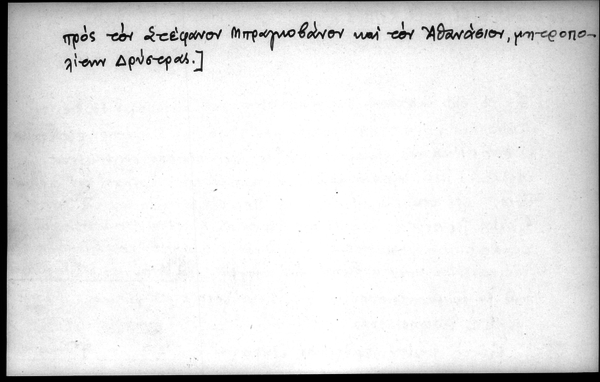 πρός τόν Στέφανον Μπραγκοβάνον καί τόν Ἀθανάσιον, μητροπο-
λίτην Δρύστρας.]